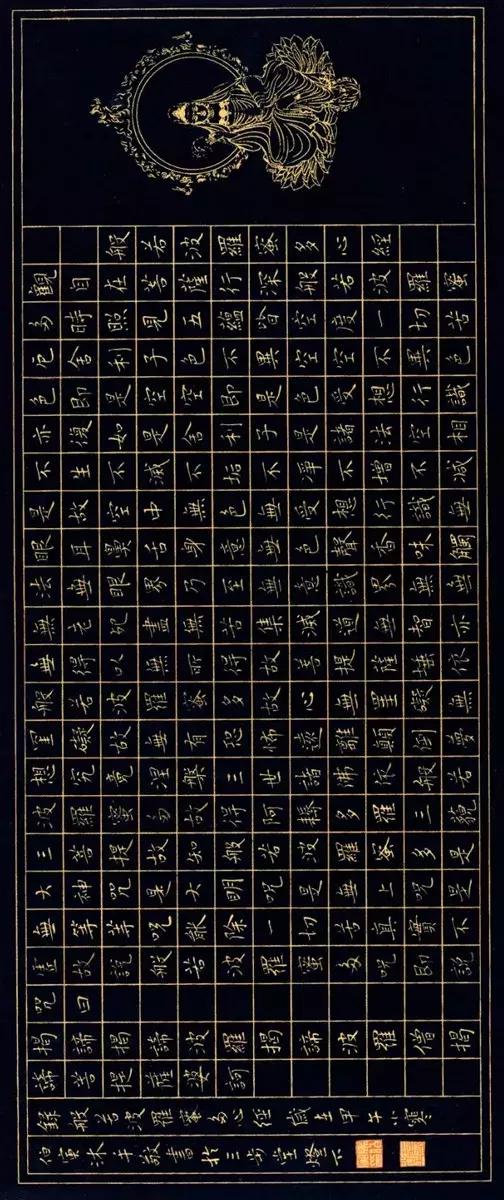 般若波羅蜜多心經
觀自在菩薩行深般若波羅蜜
多時照見五蘊皆空度一切苦
厄舍利子色不異空空不異色
色即是空空即是色受想行識
亦復如是舍利子是諸法空相
不生不滅不垢不淨不增不減
是故空中無色無受想行識無
眼耳鼻舌身意無色聲香味觸
法無眼界乃至無意識界無無
無老死盡無苦集滅道無智亦
無得以無所得故菩提薩埵依
般若波羅蜜多故心無罣礙無
罣礙故無有恐怖遠離顛倒夢
想究竟涅槃三世諸佛依般若
波羅蜜多故得阿耨多羅三藐
三菩提故知般若波羅蜜多是
大神咒是大明咒是無上咒是
無等等咒能除一切苦真實不
虛故說般若波羅蜜多咒即說
咒曰
揭諦揭諦波羅揭諦波羅僧揭
諦菩提薩婆訶
錄般若波羅蜜多心經歲在甲午小寒
沐手敬書於三堂燈下